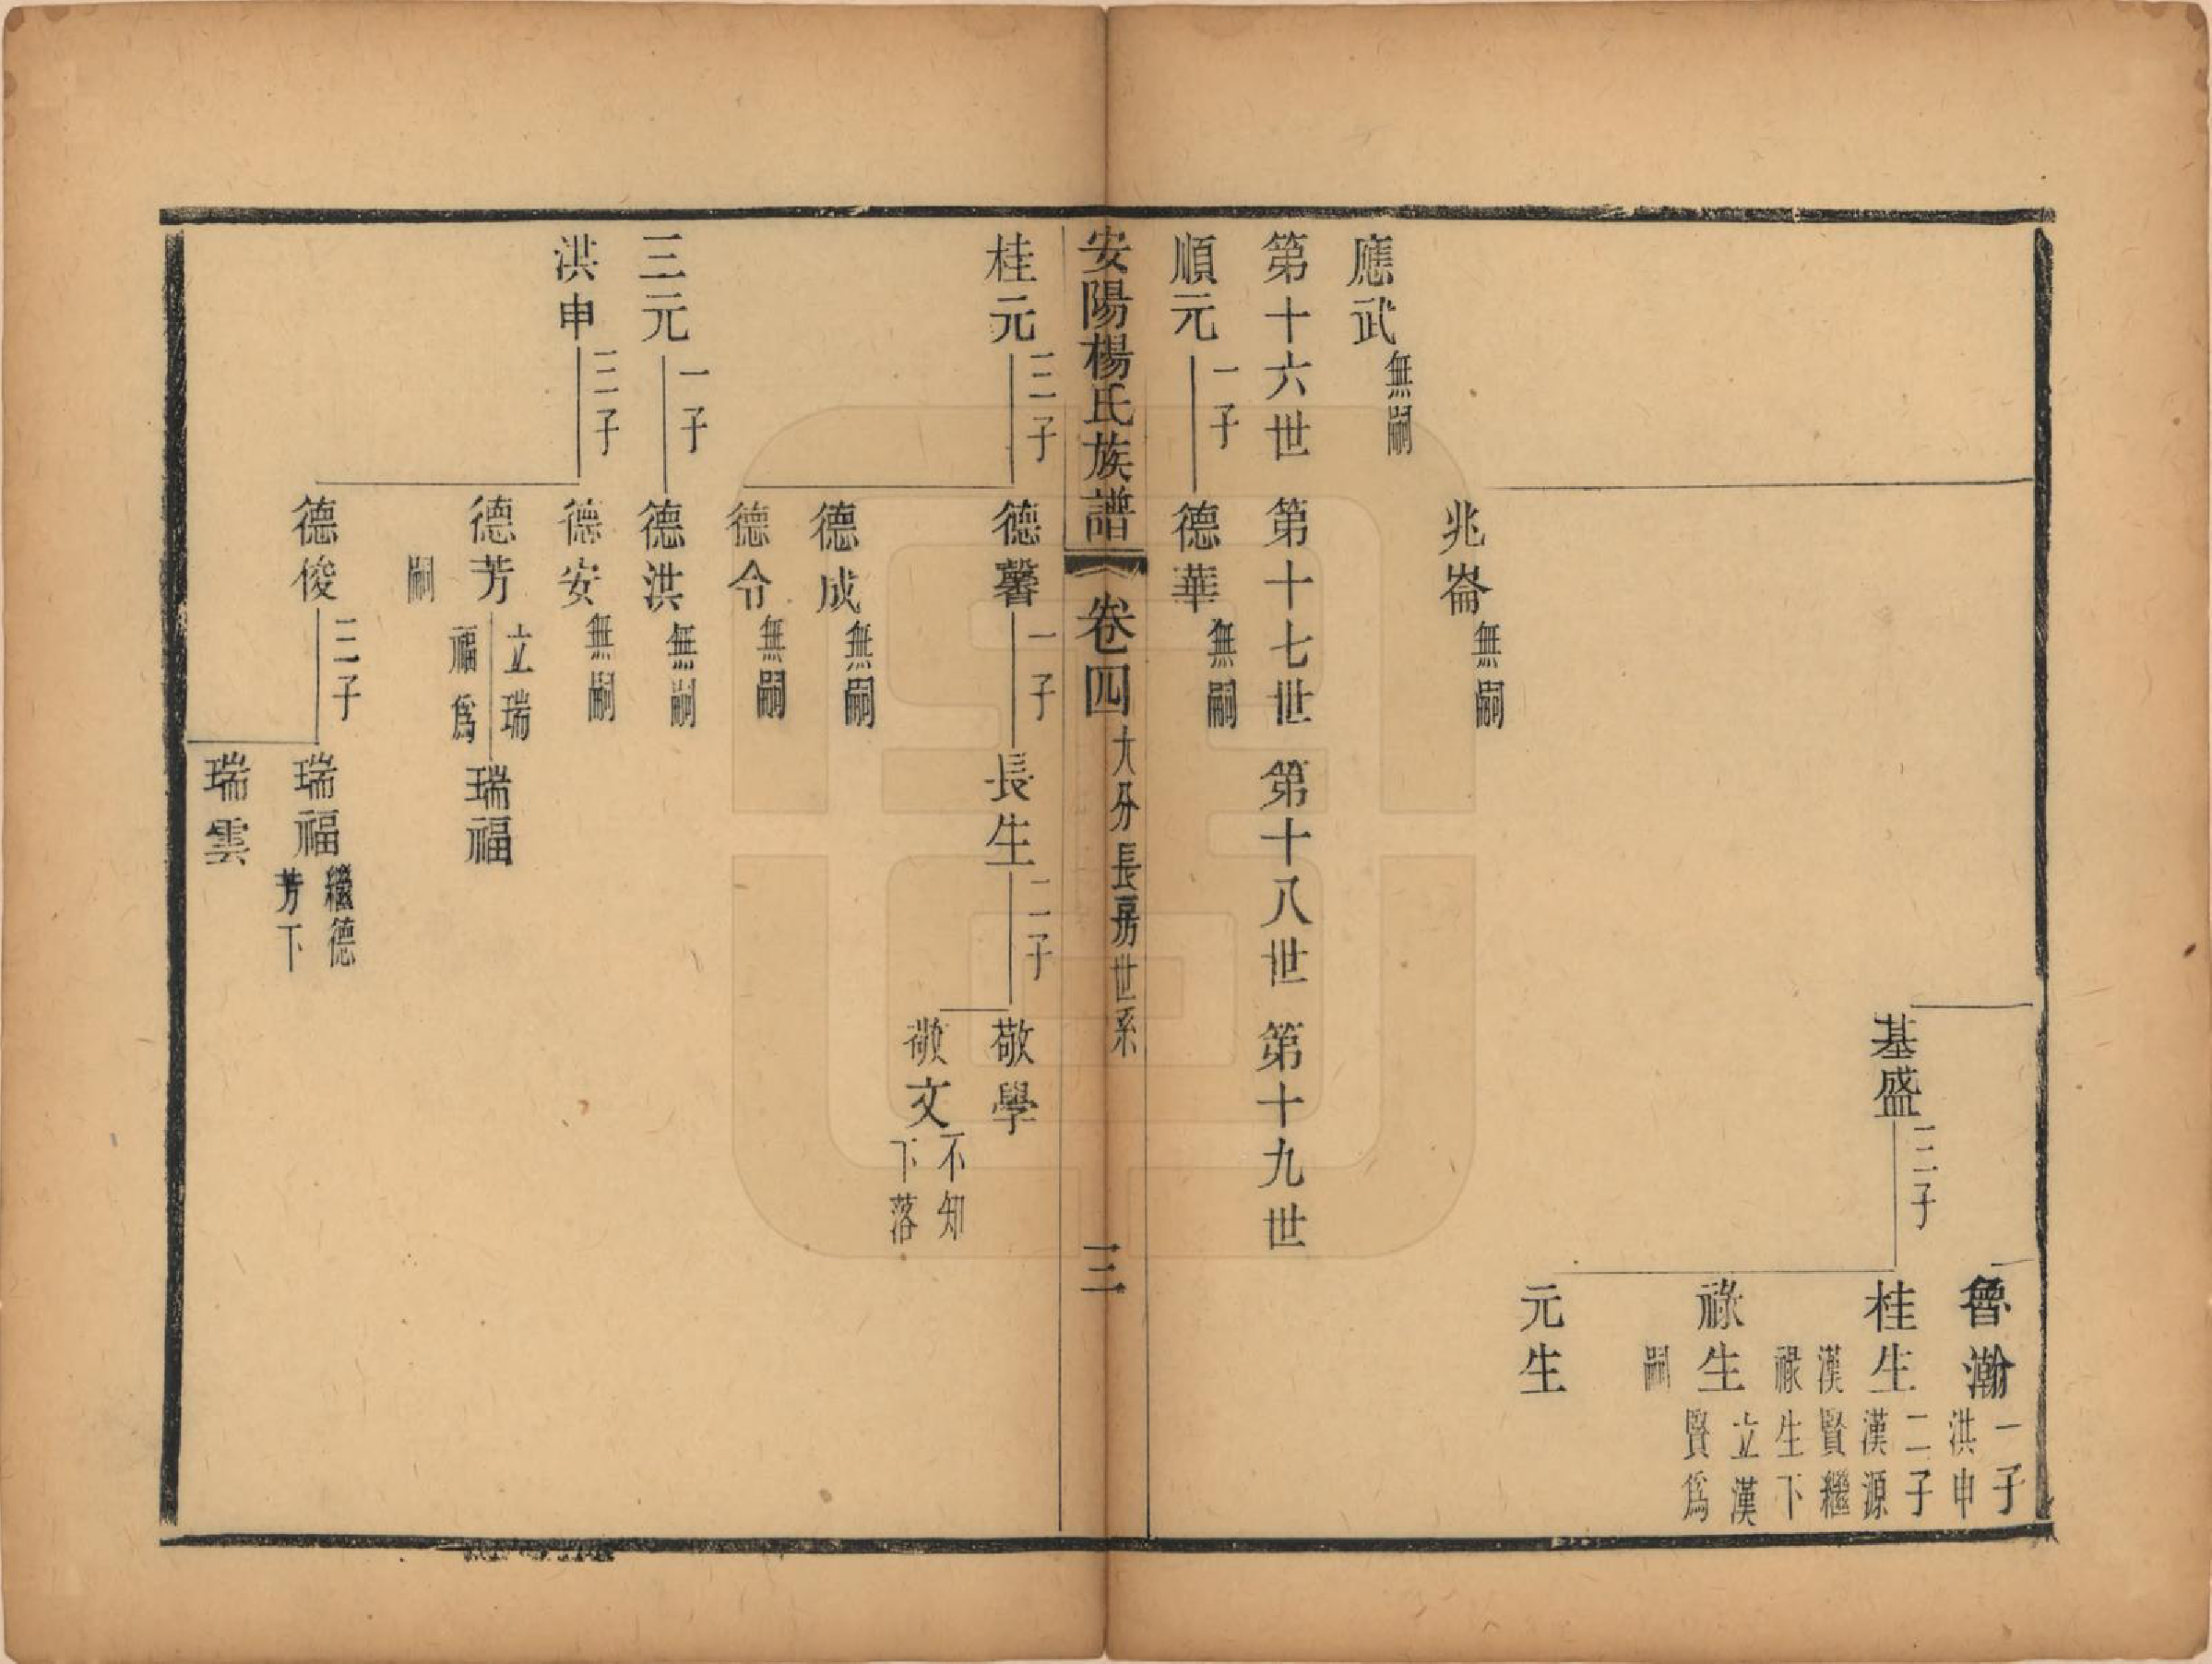 魯瀚
一子
洪申
基盛
三子
桂生
二子
漢源
漢賢繼
祿生下
祿生
立漢
賢為
嗣
元生
兆崙
無嗣
應武
無嗣
第十六世 第十七世 第十八世 第十九世
順元
一子
德華
無嗣
安陽楊氏族譜 卷四 大分長房世系 三
桂元
三子
德馨
一子
長生
二子
敬學
敬文
不知
下落
德成
無嗣
德令
無嗣
三元
一子
德洪
無嗣
洪申
三子
德安
無嗣
德芳
立瑞
福為
嗣
瑞福
德俊
二子
瑞福
繼德
芳下
瑞雲